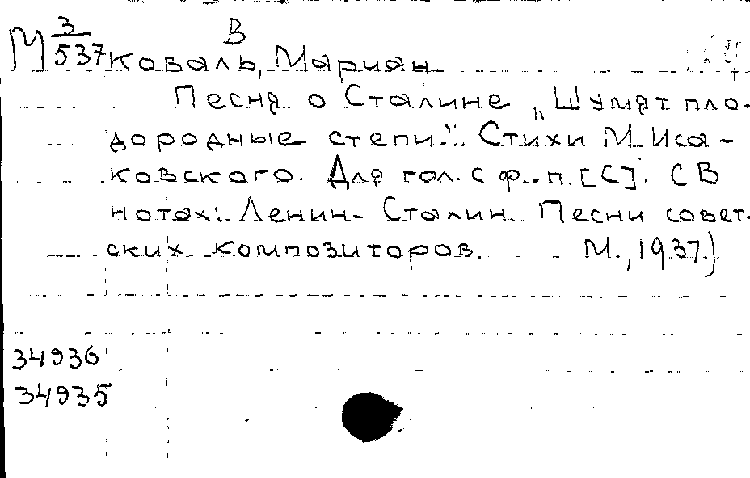 В
М 3/537 Коваль, Мариан
Песня о Сталине „Шумят пло-
дородные степи..." Стихи М. Иса-
ковского. Для гол. с ф.-п. [С]. (В
нотах: Ленин - Сталин. Песни совет-
ских композиторов. М., 1937.)
34936
34935